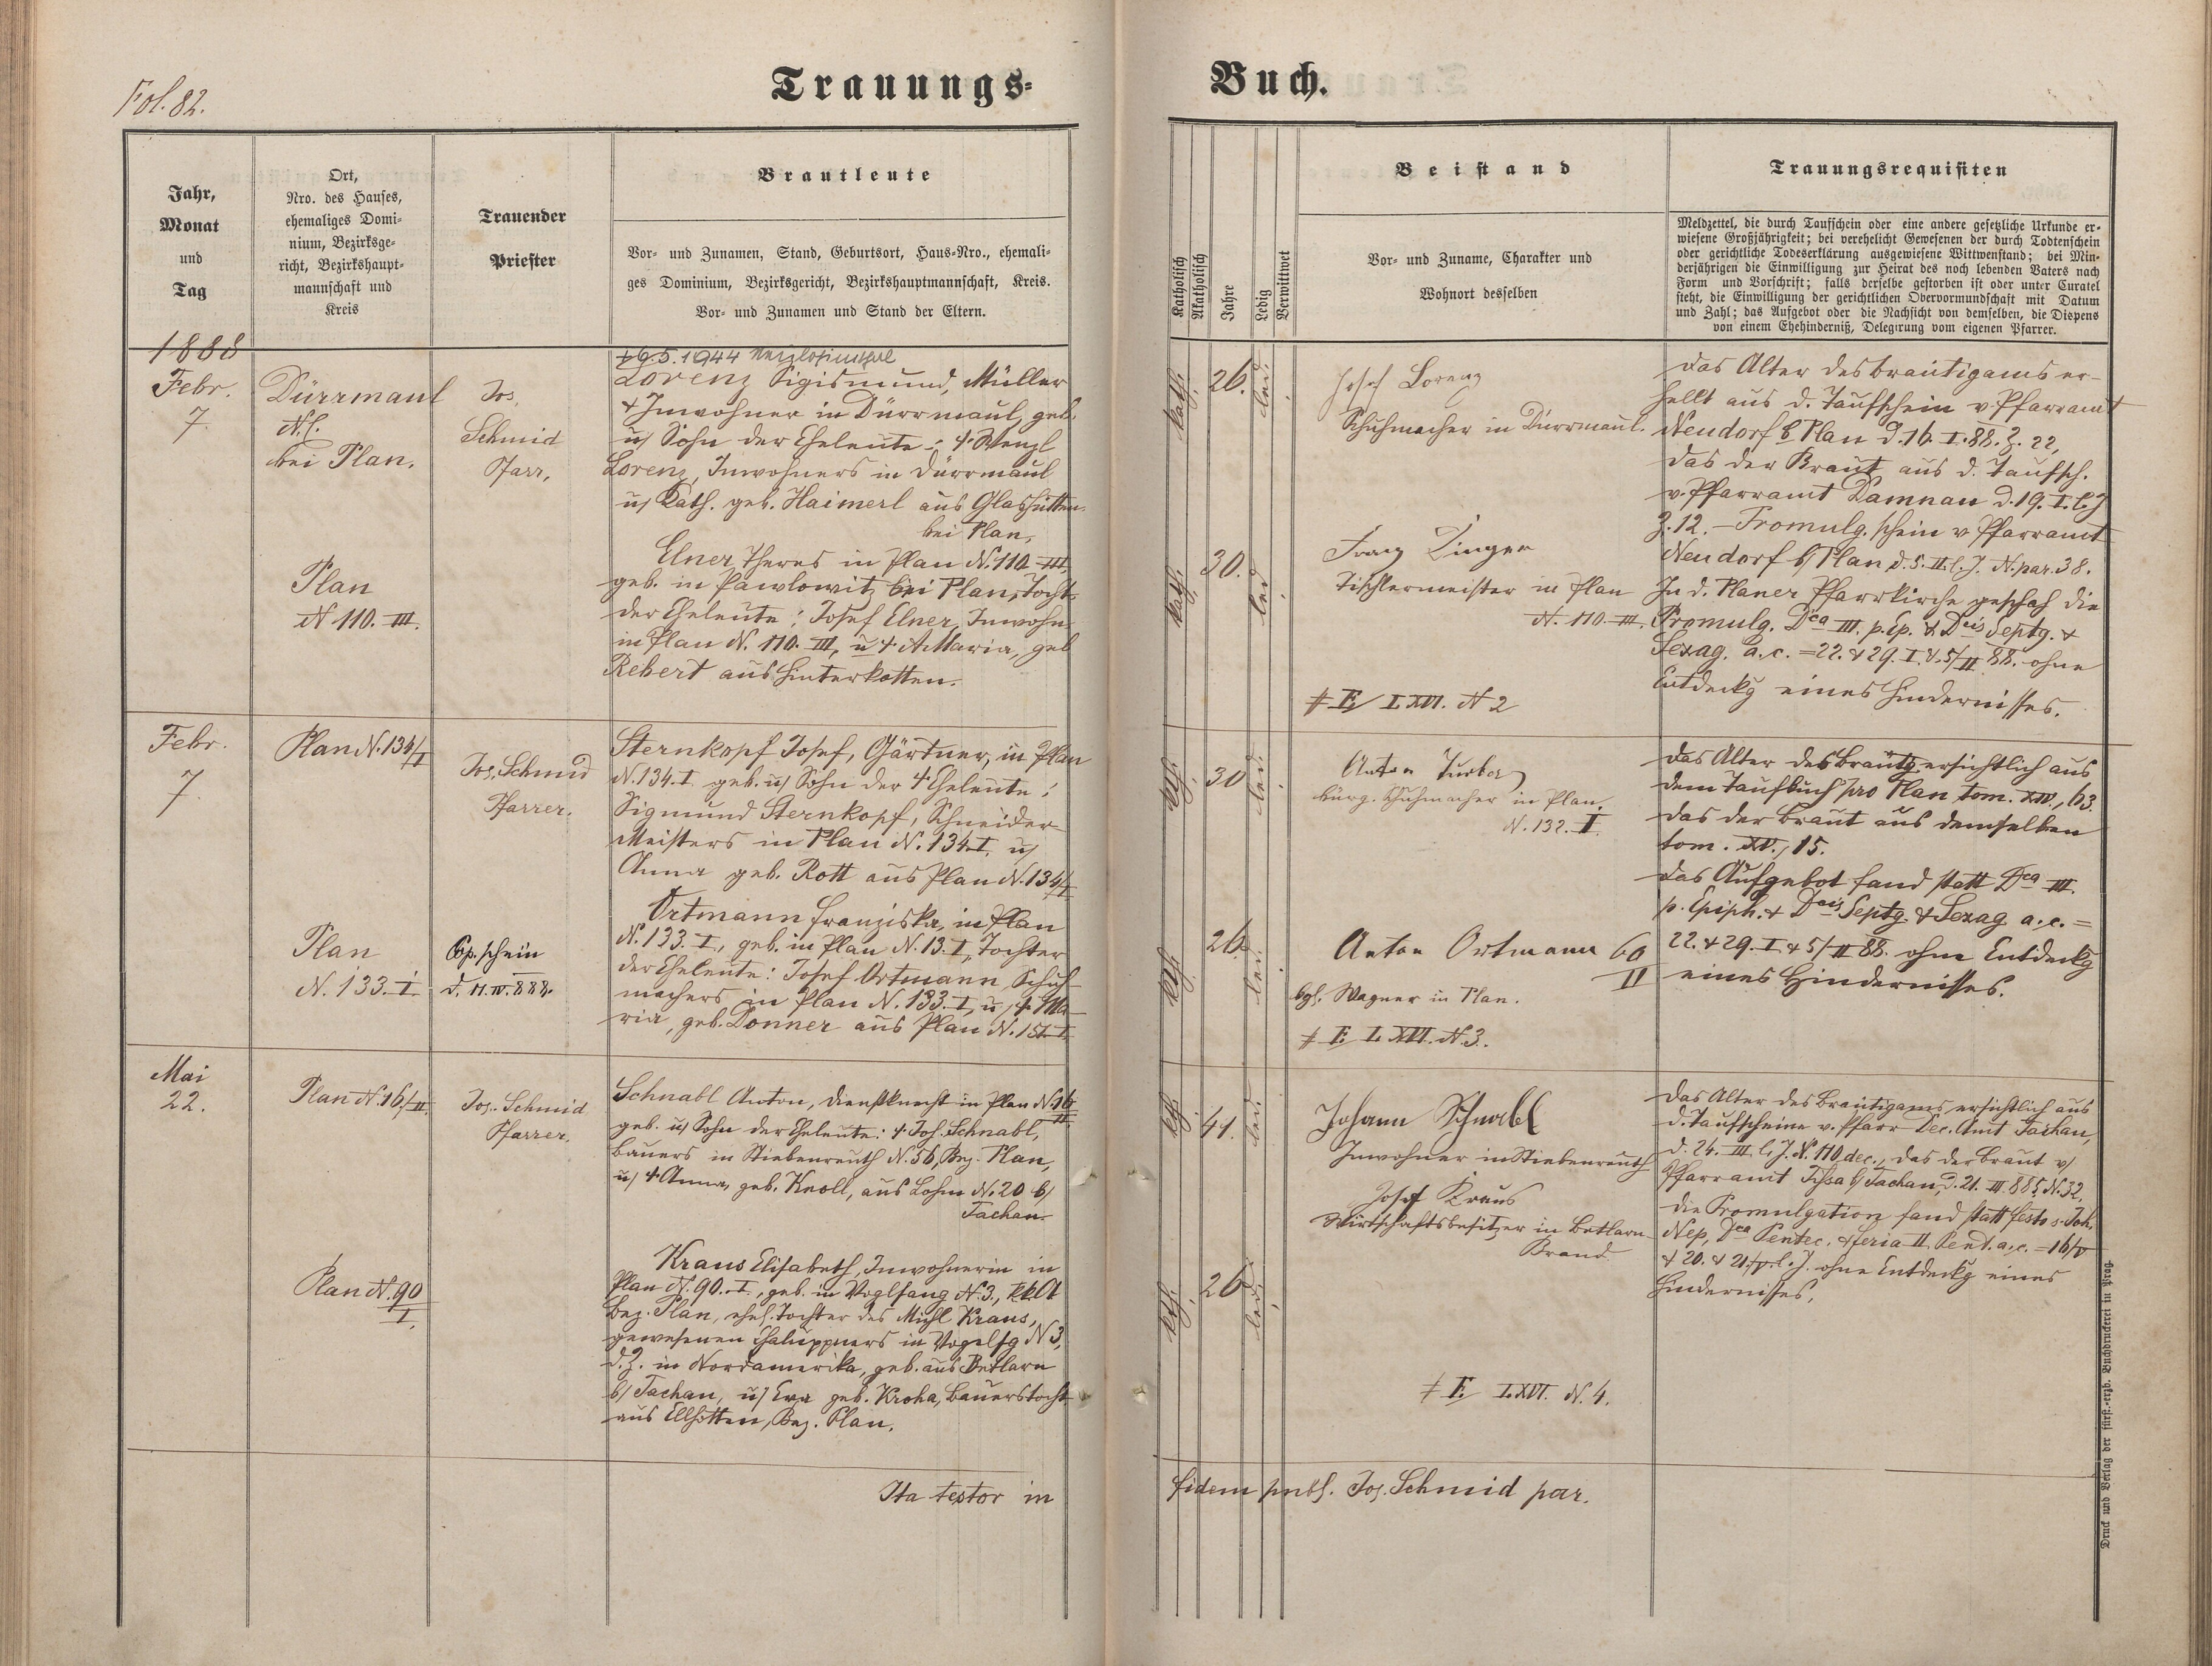 Fol. 82.
Trauungs-
Buch.
Jahr,
Monat
und
Tag
Ort,
Nro. des Hauses,
ehemaliges Domi-
nium, Bezirksge-
richt, Bezirkshaupt-
mannschaft und
Kreis
Trauender
Priester
Brautleute
Vor- und Zunamen, Stand, Geburtsort, Haus-Nro., ehemali-
ges Dominium, Bezirksgericht, Bezirkshauptmannschaft, Kreis.
Vor- und Zunamen und Stand der Eltern.
Katholisch
Akatholisch
Jahre
Ledig
Verwittwet
Beistand
Vor- und Zuname, Charakter und
Wohnort desselben
Trauungsrequisiten
Meldzettel, die durch Taufschein oder eine andere gesetzliche Urkunde er-
wiesene Großjährigkeit; bei verehelicht Gewesenen der durch Todtenschein
oder gerichtliche Todeserklärung ausgewiesene Wittwenstand; bei Min-
derjährigen die Einwilligung zur Heirat des noch lebenden Vaters nach
Form und Vorschrift; falls derselbe gestorben ist oder unter Curatel
steht, die Einwilligung der gerichtlichen Obervormundschaft mit Datum
und Zahl; das Aufgebot oder die Nachsicht von demselben, die Dispens
von einem Ehehinderniß, Delegirung vom eigenen Pfarrer.
1888
Febr.
7.
Dürrmaul
bei Plan.
Plan
N 110. III.
Jos.
Schmid
Pfarr.
6.5.1944
Lorenz Sigismund, Müller
& Inwohner in Dürrmaul, geb.
u/ Sohn der Eheleute: † Wenzl
Lorenz, Inwohners in Dürrmaul
u/ Kath. geb. Haimerl aus Glashütten
bei Plan.
Elner Theres in Plan N. 110 III,
geb. in Pawlowitz bei Plan, Tocht.
der Eheleute: Josef Elner, Inwohn.
in Plan N. 110. III, u † A. Maria, geb
Rebert aus Hinterkotten.
kath.
26.
led.
kath.
30.
led.
Josef Lorenz
Schuhmacher in Dürrmaul.
Franz Zinger
Tischlermeister in Plan
N. 110 III.
# F/ L XVI. N 2
Das Alter des Bräutigams er-
hellt aus d. Taufschein v. Pfarramt
Neudorf b Plan d. 16. I. 88. Z. 22,
das der Braut aus d. Taufsch.
v. Pfarramt Damnau d. 19. I. l. J
Z. 12. – Promulg. schein v Pfarramt
Neudorf b/ Plan d. 5. II. l. J. N. par. 38.
In d. Planer Pfarrkirche geschah die
Promulg. Dca III. p. Ep. & Dcis Septg. &
Sexag. a. c. = 22. & 29. I. & 5/II 88. ohne
Entdeckg eines Hindernisses.
Febr.
7.
Plan N. 134/I
Plan
N. 133. I.
Jos. Schmid
Pfarrer.
Cop. schein
d. 11. IV. 888.
Sternkopf Josef, Gärtner, in Plan
N. 134. I. geb. u/ Sohn der † Eheleute:
Sigmund Sternkopf, Schneider-
Meisters in Plan N. 134. I. u/
Anna geb. Rott aus Plan N. 134/I
Ortmann Franziska, in Plan
N. 133. I., geb. in Plan N. 13. I, Tochter
der Eheleute: Josef Ortmann, Schuh-
machers in Plan N. 133. I, u/ † Ma-
ria, geb. Donner aus Plan N. 151. I.
kth.
30
led.
kth.
26.
led.
Anton
bürg. Schuhmacher in Plan.
N. 132. I.
Anton Ortmann 60
II
bgl. Wagner in Plan.
# F. L. XVI. N. 3.
Das Alter des Bräutg. ersichtlich aus
dem Taufbuch pro Plan tom. XIV, 63.
das der Braut aus demselben
tom. XV., 15.
Das Aufgebot fand statt Dca III.
p. Epiph. & Dcis Septg. & Sexag a. c. =
22. & 29. I. & 5/II 88. ohne Entdeckg
eines Hindernisses.
Mai
22.
Plan N. 16/II.
Plan N. 90
I.
Jos. Schmid
Pfarrer.
Schnabl Anton, Dienstknecht in Plan N. 16
II
geb. u/ Sohn der Eheleute: † Joh. Schnabl,
Bauers in Stiebenreuth N. 56, Bez. Plan,
u/ † Anna, geb. Knoll, aus Lohm N. 20 b/
Tachau.
Kraus Elisabeth, Inwohnerin in
Plan N. 90. I., geb. in Voglfang N. 3,
Bez. Plan, ehel. Tochter des Michl Kraus,
gewesenen Chaluppners in Vogelfg N 3,
d. Z. in Nordamerika, geb. aus Betlarn
b/ Tachau, u/ Eva geb. Kroha, Bauerstocht.
aus Ellhotten, Bez. Plan.
kth.
41.
led.
kth.
26
led.
Johann Schnabl
Inwohner in Stiebenreuth
Josef Kraus
Wirtschaftsbesitzer in Betlarn
Brand.
# F. L. XVI. N. 4.
Das Alter des Bräutigams ersichtlich aus
d. Taufscheine v. Pfarr Dec. Amt Tachau,
d. 24. III. l. J. N. 110 dec., das der Braut v/
Pfarramt Tissa b/ Tachau, d. 21. III. 885 N. 32.
Die Promulgation fand statt festo s. Joh.
Nep, Dca Pentec. & feria II. Pent. a. c. = 16/V
& 20. & 21/V. l. J. ohne Entdeckg eines
Hindernisses.
Ita testor in fidem pnbl. Jos. Schmid par.
Druck und Verlag der fürst.-erzb. Buchdruckerei in Prag.